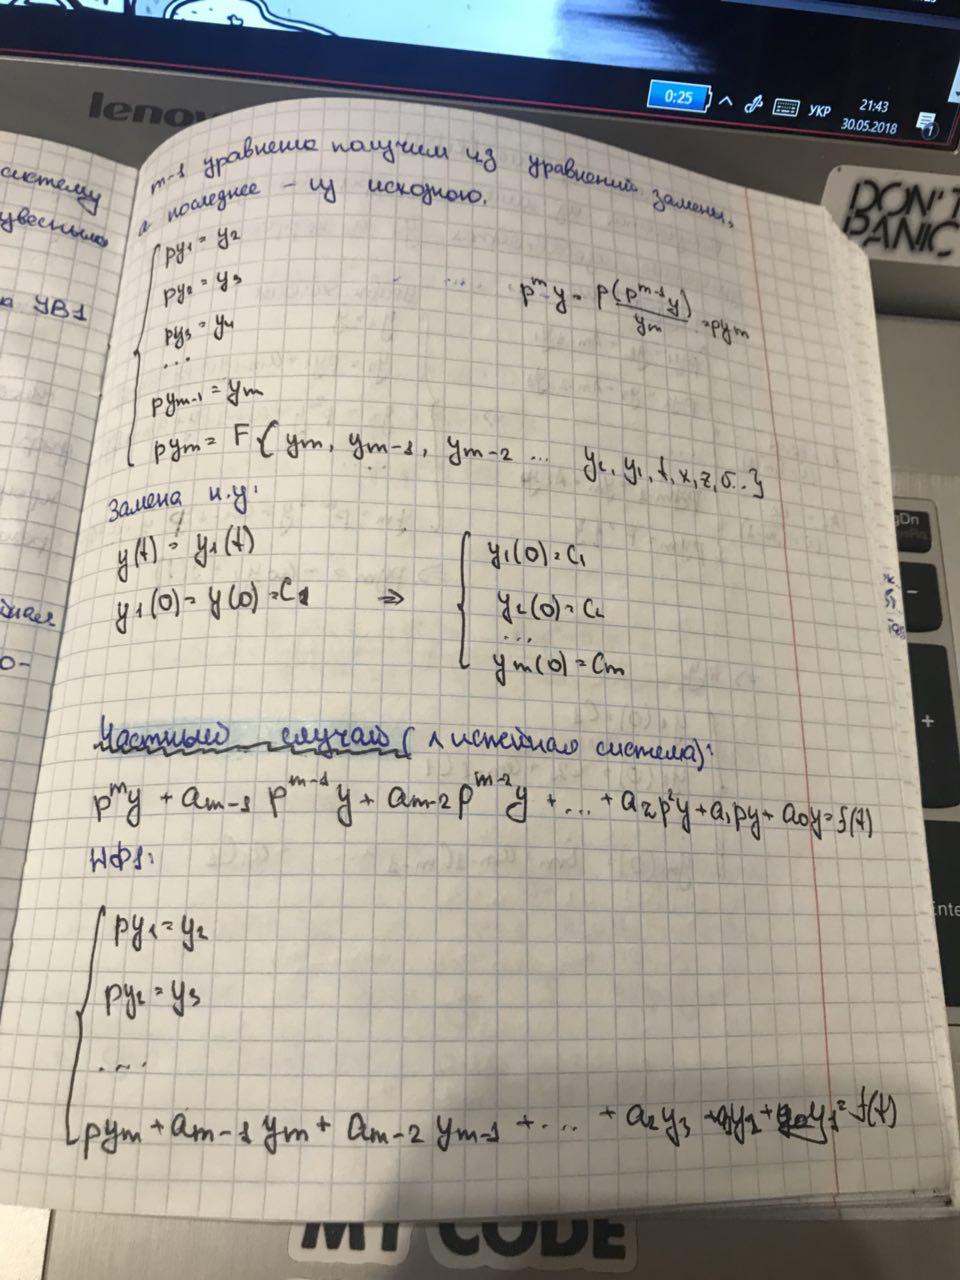 lenovo
0:25
УКР
21:43
30.05.2018
1
DON'T
PANIC
систему
а УВ1
о-
m-1 уравнение получим из уравнений замены,
а последнее - из исходного.
py₁ = y₂
py₂ = y₃
py₃ = y₄
...
pyₘ₋₁ = yₘ
pyₘ = F{yₘ, yₘ₋₁, yₘ₋₂ ... y₂, y₁, t, x, z, σ..}
... pᵐy = p(pᵐ⁻¹y) = pyₘ
yₘ
Замена н.у:
y(t) = y₁(t)
y₁(0) = y(0) = C₁ ⇒
y₁(0) = C₁
y₂(0) = C₂
...
yₘ(0) = Cₘ
Частный случай (линейная система):
pᵐy + aₘ₋₁ pᵐ⁻¹y + aₘ₋₂ pᵐ⁻²y + ... + a₂p²y + a₁py + a₀y = f(t)
НФ1:
py₁ = y₂
py₂ = y₃
....
pyₘ + aₘ₋₁ yₘ + aₘ₋₂ yₘ₋₁ + ... + a₂y₃ + a₁y₂ + a₀y₁ = f(t)
gDn
-
+
Enter
MY CODE